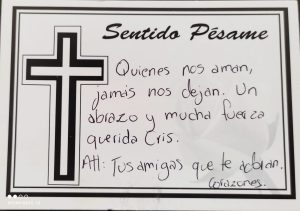 Sentido Pésame
Quienes nos aman,
jamás nos dejan. Un
abrazo y mucha fuerza
querida Cris.
Att: Tus amigas que te adoran.
Corazones.